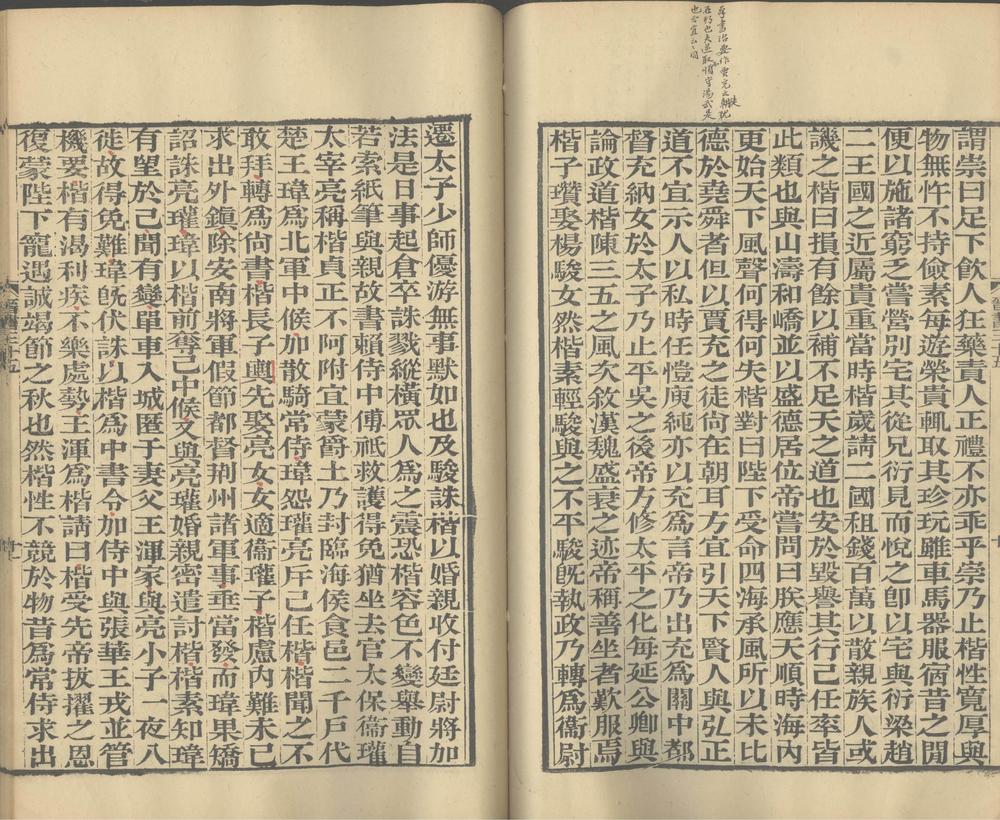 謂崇曰足下飲人狂藥責人正禮不亦乖乎崇乃止楷性寬厚與
物無忤不持儉素每遊榮貴輒取其珍玩雖車馬器服宿昔之閒
便以施諸窮乏嘗營別宅其從兄衍見而悅之卽以宅與衍梁趙
二王國之近屬貴重當時楷歲請二國租錢百萬以散親族人或
譏之楷曰損有餘以補不足天之道也安於毀譽其行己任率皆
此類也與山濤和嶠並以盛德居位帝嘗問曰朕應天順時海內
更始天下風聲何得何失楷對曰陛下受命四海承風所以未比
德於堯舜者但以賈充之徒尙在朝耳方宜引天下賢人與弘正
道不宜示人以私時任愷庾純亦以充爲言帝乃出充爲關中都
督充納女於太子乃止平吳之後帝方修太平之化每延公卿與
論政道楷陳三五之風次敘漢魏盛衰之迹帝稱善坐者歎服焉
楷子瓚娶楊駿女然楷素輕駿與之不平駿旣執政乃轉爲衞尉
遷太子少師優游無事默如也及駿誅楷以婚親收付廷尉將加
法是日事起倉卒誅戮縱橫眾人爲之震恐楷容色不變舉動自
若索紙筆與親故書賴侍中傅祗救護得免猶坐去官太保衞瓘
太宰亮稱楷貞正不阿附宜蒙爵土乃封臨海侯食邑二千戶代
楚王瑋爲北軍中候加散騎常侍瑋怨瓘亮斥己任楷楷聞之不
敢拜轉爲尙書楷長子輿先娶亮女女適衞瓘子楷慮內難未已
求出外鎭除安南將軍假節都督荆州諸軍事垂當發而瑋果矯
詔誅亮瓘瑋以楷前奪己中候又與亮瓘婚親密遣討楷楷素知瑋
有望於己聞有變單車入城匿于妻父王渾家與亮小子一夜八
徙故得免難瑋旣伏誅以楷爲中書令加侍中與張華王戎並管
機要楷有渴利疾不樂處勢王渾爲楷請曰楷受先帝拔擢之恩
復蒙陛下寵遇誠竭節之秋也然楷性不競於物昔爲常侍求出